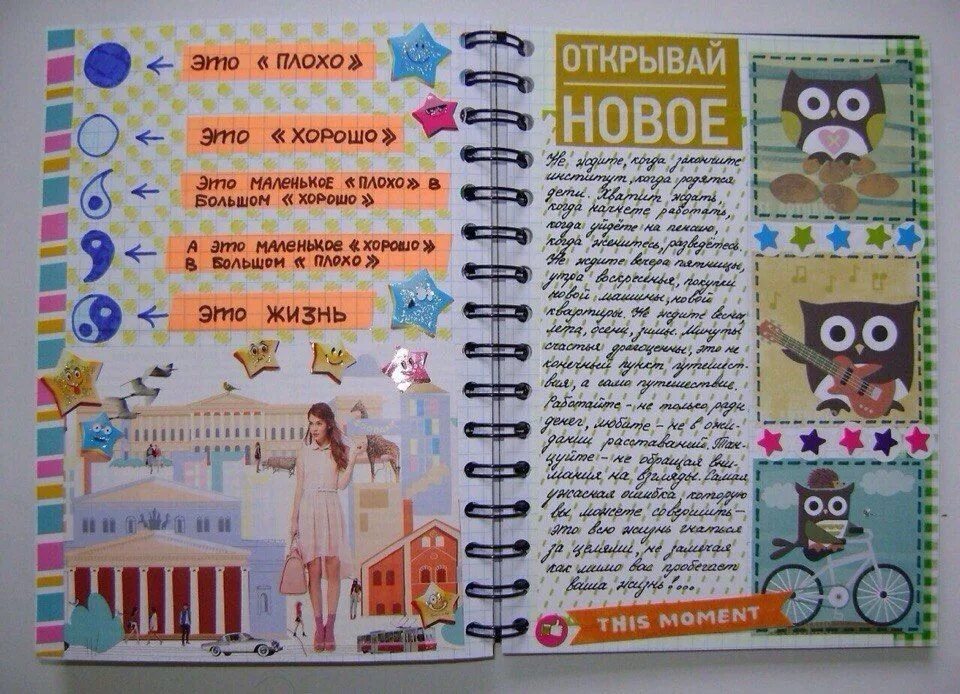 Это «ПЛОХО»
Это «ХОРОШО»
Это маленькое «плохо» в
большом «хорошо»
А это маленькое «хорошо»
в большом «плохо»
Это ЖИЗНЬ
ЗООПАРК
ОТКРЫВАЙ
НОВОЕ
Не ждите, когда закончите
институт, когда родятся
дети. Хватит ждать,
когда начнёте работать,
когда уйдёте на пенсию,
когда женитесь, разведётесь.
Не ждите вечера пятницы,
утра воскресенья, покупки
новой машины, новой
квартиры. Не ждите весны,
лета, осени, зимы. Минуты
счастья драгоценны; это не
конечный пункт путешест-
вия, а само путешествие.
Работайте – не только ради
денег, любите – не в ожи-
дании расставаний. Тан-
цуйте – не обращая вни-
мания на взгляды. Самая
ужасная ошибка, которую
вы можете совершить –
это всю жизнь гнаться
за целями, не замечая
как мимо вас пробегает
ваша жизнь!...
THIS MOMENT